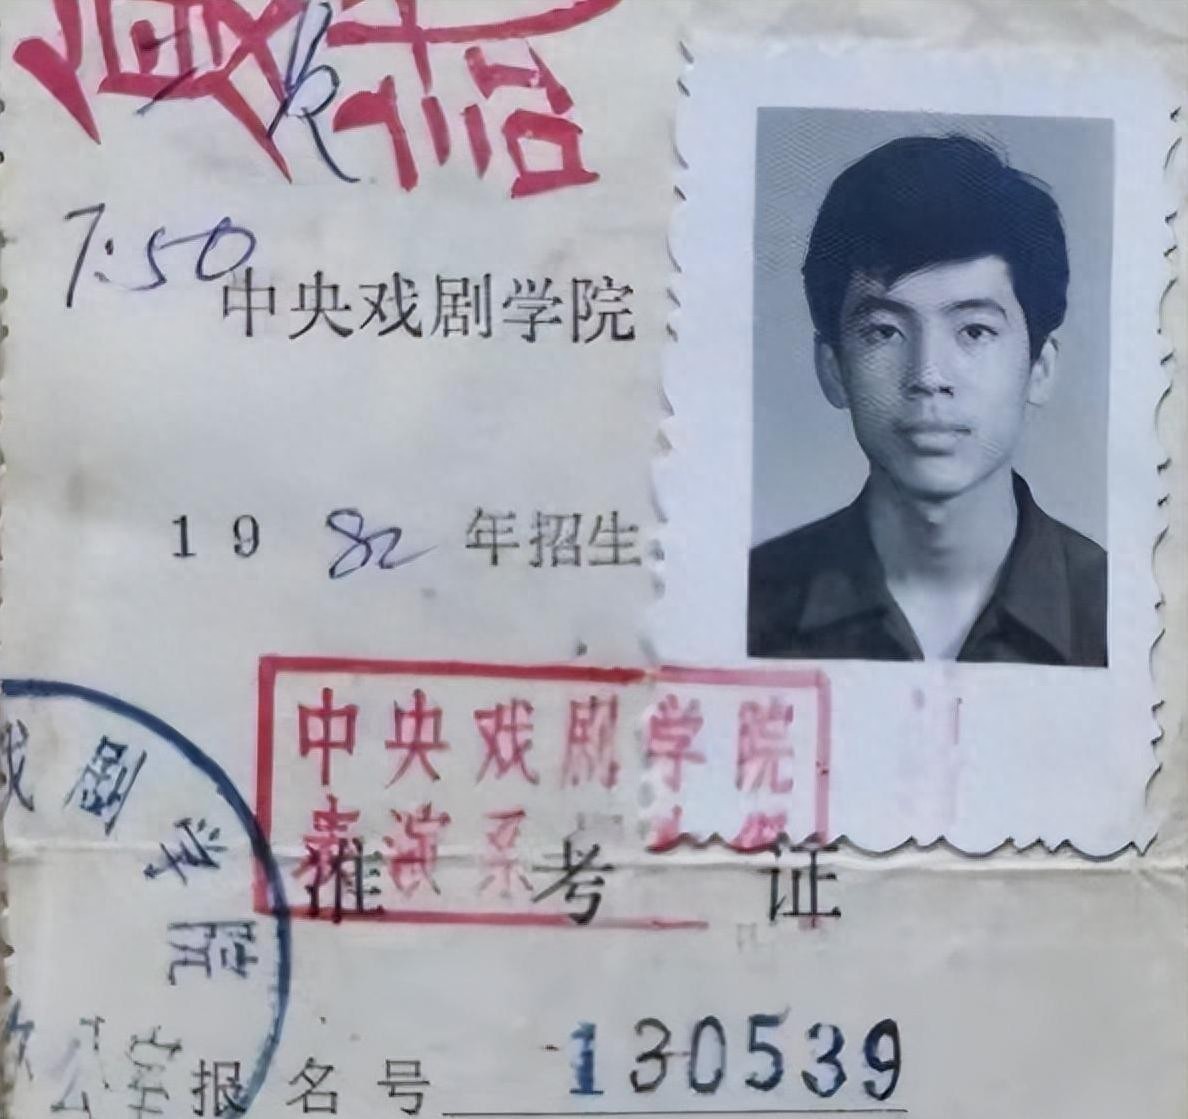 7:50
中央戏剧学院
1982年招生
中央戏剧学院
表演系
准考证
戏剧学院
报名号 130539